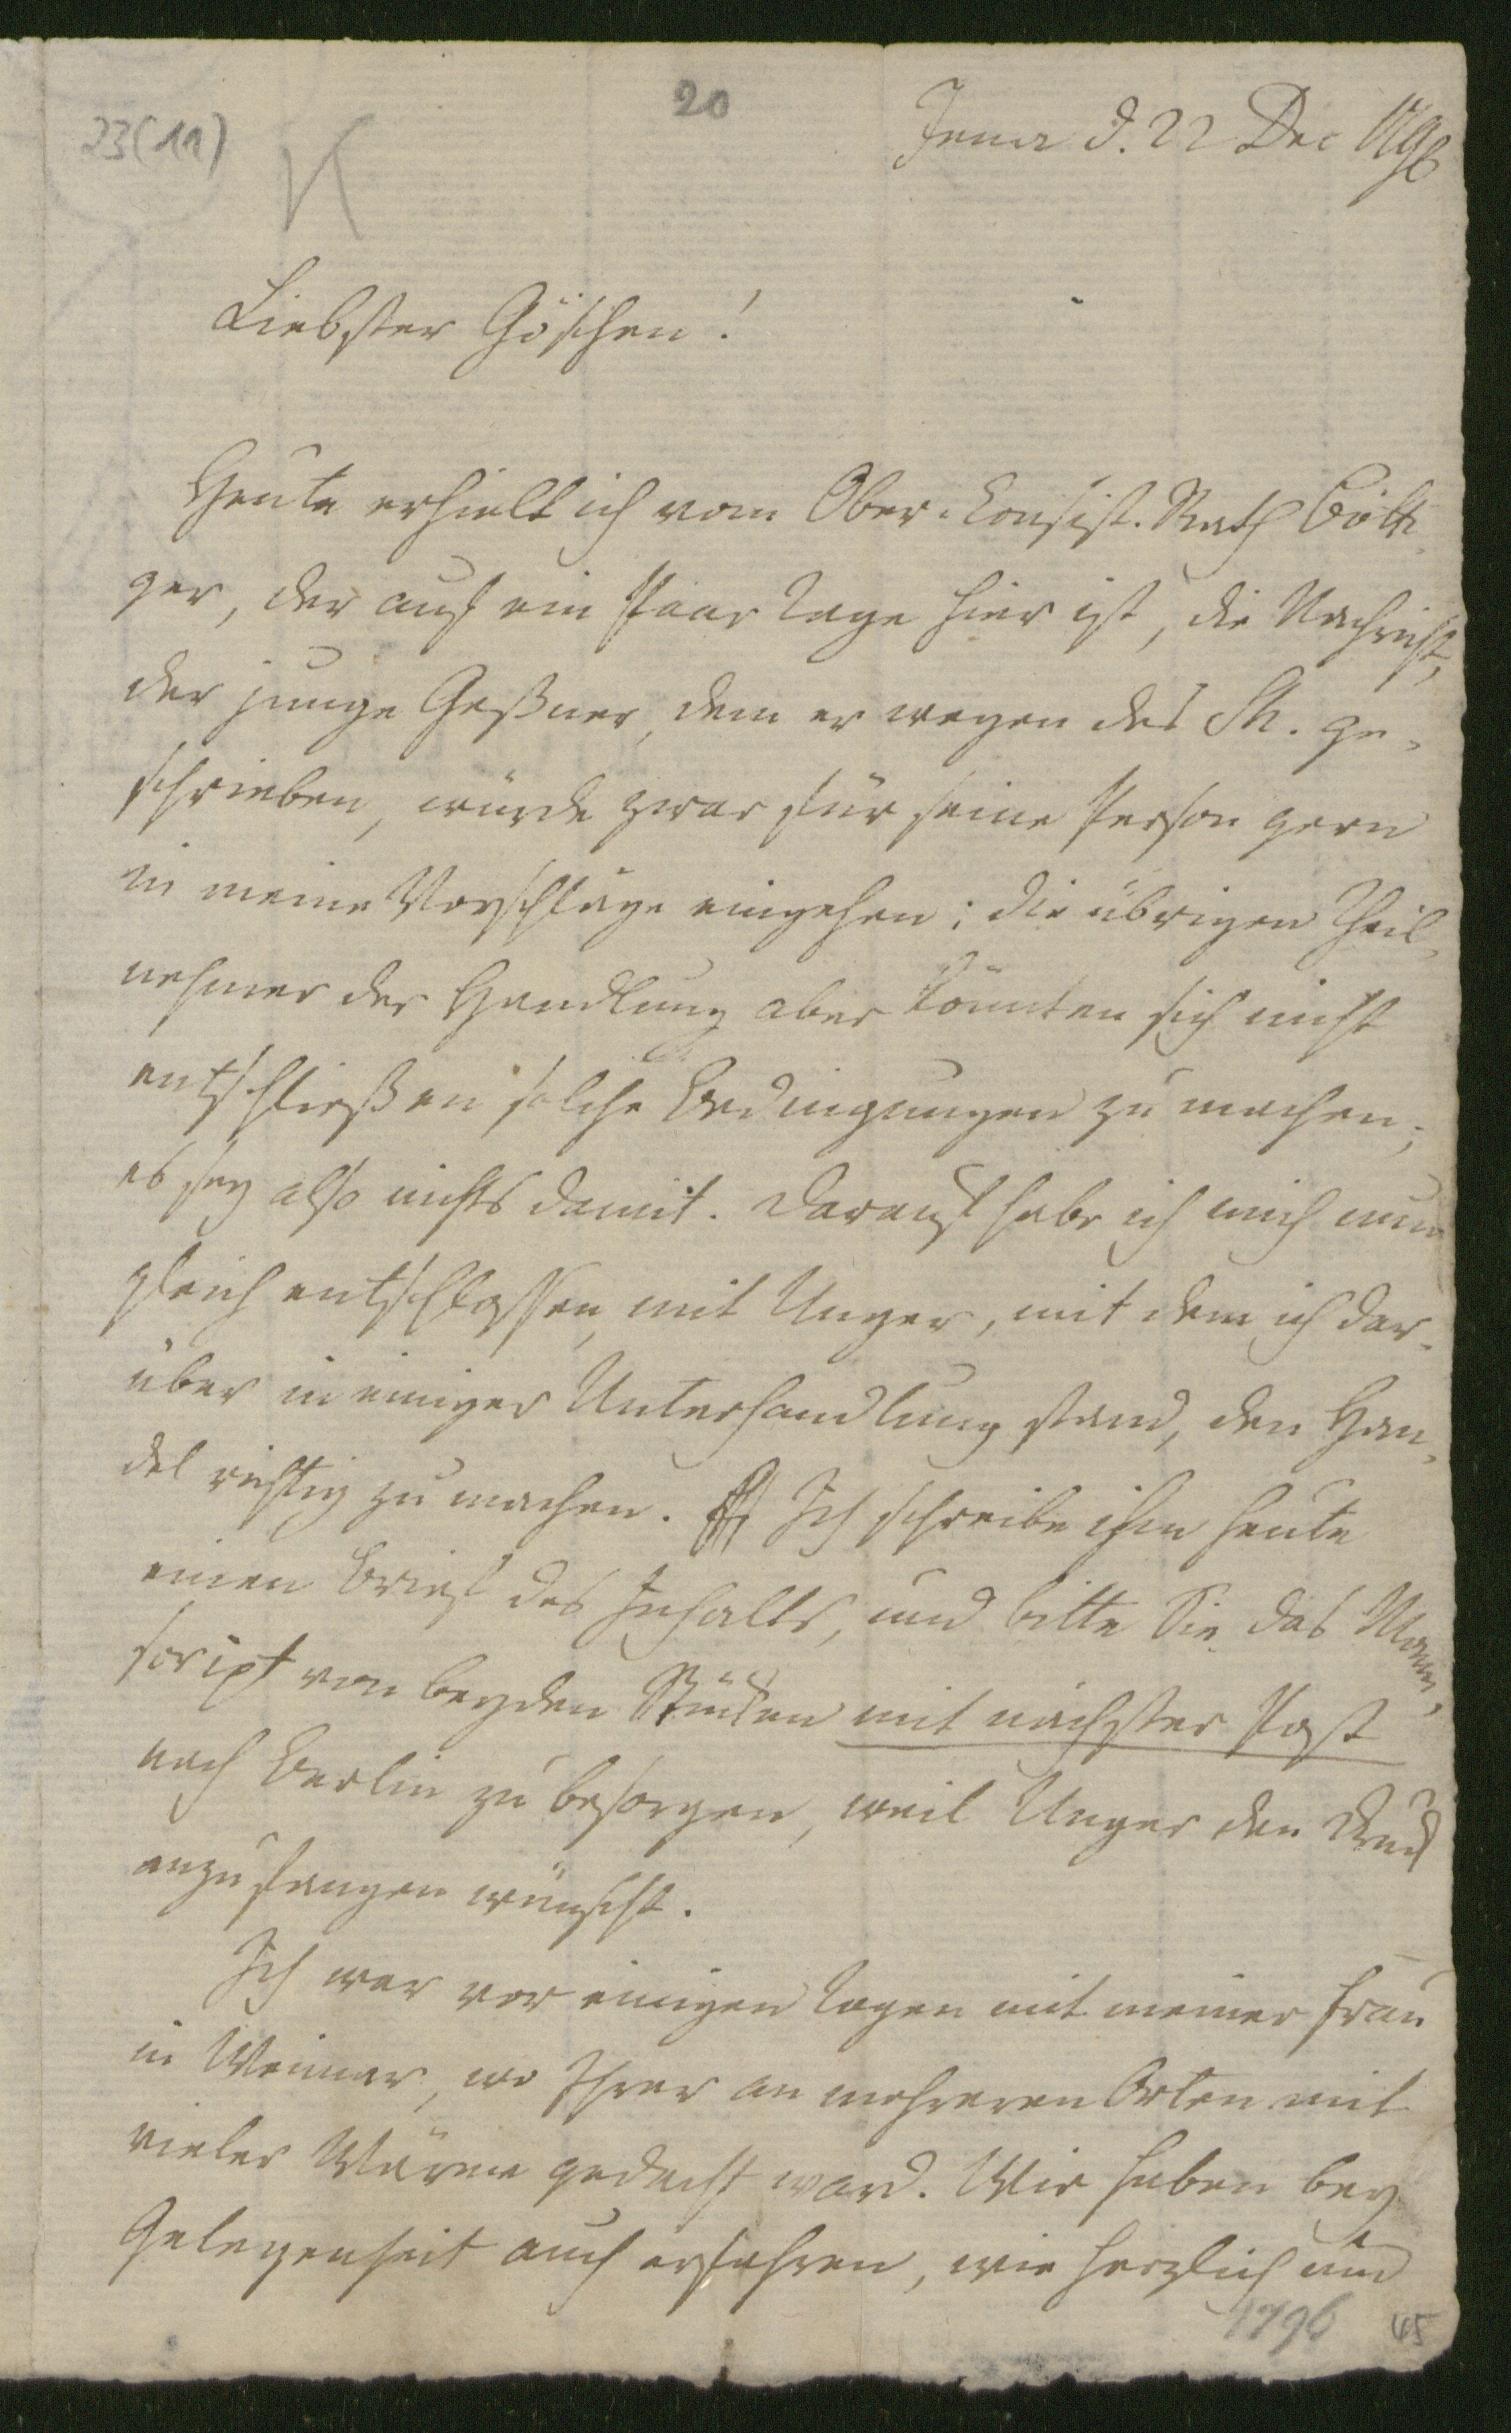 20
23(11)
Jena d. 22 Dec 1796
Liebster Göschen!
Heute erhielt ich vom Ober-Consist. Rath Bötti-
ger, der auf ein Paar Tage hier ist, die Nachricht,
der junge Geßner, dem er wegen des Sh. ge-
schrieben, würde zwar für seine Person gern
in meine Vorschläge eingehen; die übrigen Theil-
nehmer der Handlung aber könnten sich nicht
entschließen solche Bedingungen zu machen;
es sey also nichts damit. Darauf habe ich mich nun
gleich entschlossen, mit Unger, mit dem ich dar-
über in einiger Unterhandlung stand, den Han-
del richtig zu machen. Ich schreibe ihm heute
einen Brief des Inhalts, und bitte Sie das Manu-
script von beyden Stücken mit nächster Post
nach Berlin zu besorgen, weil Unger den Druck
anzufangen wünscht.
Ich war vor einigen Tagen mit meiner Frau
in Weimar, wo Ihrer an mehreren Orten mit
vieler Wärme gedacht ward. Wir haben bey
Gelegenheit auch erfahren, wie herzlich und
1796
45